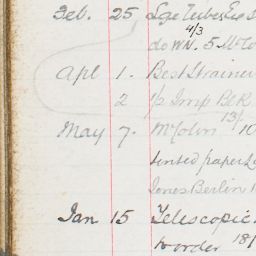 Feb. 25
4/3
do WN. 5
Apl 1. Best Strainer
2 1/2 Imp Blk
13/-
May 7. McColm 10
tinted paper
Jones Berlin
Jan 15 Telescopic
to order 18/